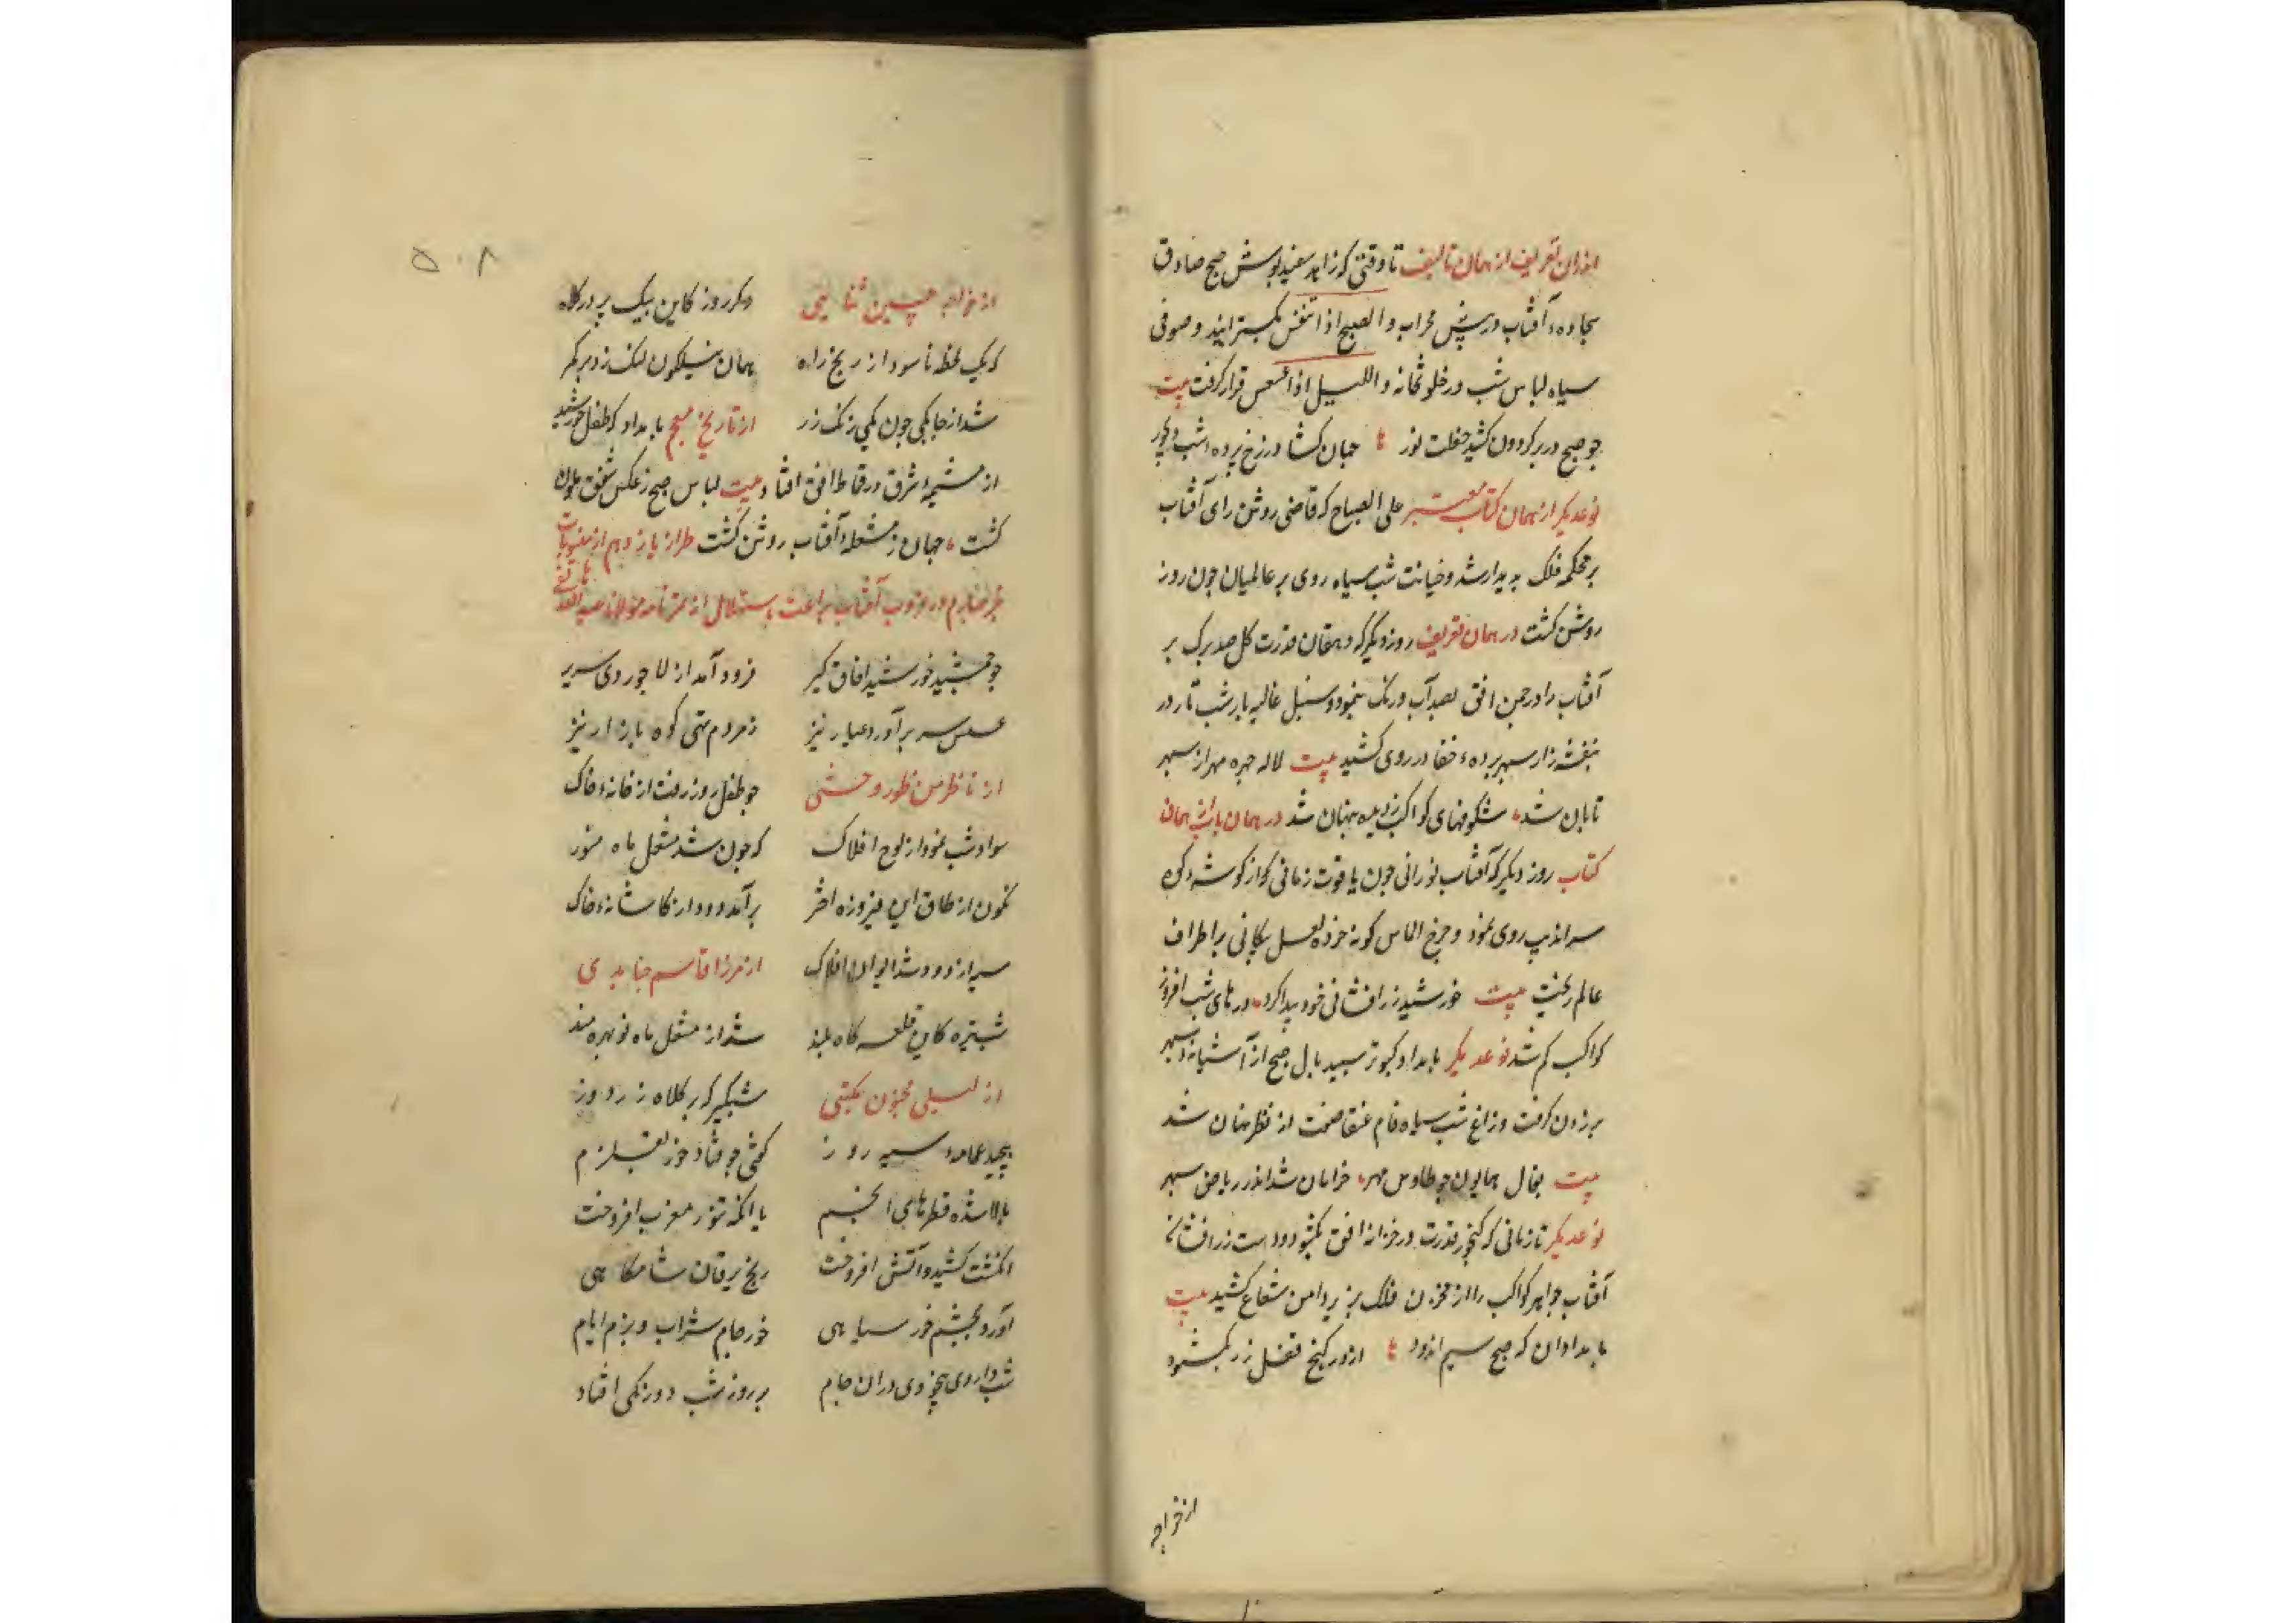 اندران تعریف از همان تالیف تا وقتی که زاهد سفید پوش صبح صادق
سجاده آفتاب در پیش محراب والصبح اذا تنفس بگسترانید و صوفی
سیاه لباس شب در خلوتخانه واللیل اذا عسعس قرار گرفت بیت
چو صبح در بر گردون کشید خلعت نور جهان کشاد ز رخ پرده شب دیجور
نوعدیگر از همان کتاب معتبر علی الصباح که قاضی روشن رای آفتاب
بر محکمه فلک پدیدار شد و خیانت شب سیاه روی بر عالمیان چون روز
روشن گشت در همان تعریف روز دیگر که دهقان قدرت گل صد برگ بر
آفتاب را در چمن افق بصد آب و رنک بنمود و سنبل غالیه بار شب تار در
بنفشه زار سپهر پرده خفا در روی کشید بیت لاله چهره مهر از سپهر
تابان شد شکوفهای کواکب ز دیده پنهان شد در همان باب از همان
کتاب روز دیگر که آفتاب نورانی چون یاقوت زمانی کو از گوشه کوه
سراندیب روی نمود و چرخ الماس گونه خرده لعل پیکانی بر اطراف
عالم ریخت بیت خورشید زرافشانی خود پیدا کرد درهای شب افروز
کواکب گم شد نوعدیگر بامداد کبوتر سپید بال صبح از آشیانه سپهر
برون گرفت و زاغ شب سیاه فام عنقا صفت از نظر نهان شد
بیت بفال همایون چو طاوس مهر خرامان شد اندر ریاض سپهر
نوعدیگر تا زمانی که گنجور قدرت در خزانه افق بگشود و دست زرافشان
آفتاب جواهر کواکب را از مخزن فلک بزیر دامن شعاع کشید بیت
بامدادان که صبح سیم اندود از در گنج قفل زر بگشود
از خواجه
۵۰۸
از خواجه حسین ثنایی دگر روز کاین پیک پر در کلاه
که یک لحظه ناسود از رنج راه همان نیلگون لنک زد بر کمر
شد از چابکی چون یکی زنک زر از تاریخ مسیح بامداد که طفل خورشید
از مشیمه شرق در قماط افق افتاد بیت لباس صبح ز عکس شفق ملون
گشت جهان ز مشعله آفتاب روشن گشت طراز یازدهم از منسوبات
طرز چهارم در غروب آفتاب براعت استهلال از تمرنامه مولانا عبدالله هاتفی
چو جمشید خورشید آفاق گیر فرود آمد از لاجوردی سریر
عسس سر برآورد و عیار نیز ز مردم تهی کوه بازار نیز
از ناظر منظور وحشی چو طفل روز رفت از خانه خاک
سواد شب نمود از لوح افلاک که چون شد مشعل ماه منور
نگون از طاق این فیروزه اخضر برآمد دود از کاشانه خاک
سیه از دود شد ایوان افلاک از مرزا قاسم جنابدی
شب تیره کاین قلعه گاه بلند شد از مشعل ماه نو بهره مند
از لیلی مجنون مکتبی شبگیر که بر کلاه زردوز
پیچید عمامه سیه روز گفتی چو فتاد خور بقلزم
بالا شده قطرهای انجم یا آنکه تنور مغرب افروخت
انگشت کشید و آتش افروخت رنج یرقان شامگاهی
آورد بچشم خور سیاهی خور جام شراب و بزم ایام
شب داروی بیخودی دران جام بر روز شب دو رنگی افتاد